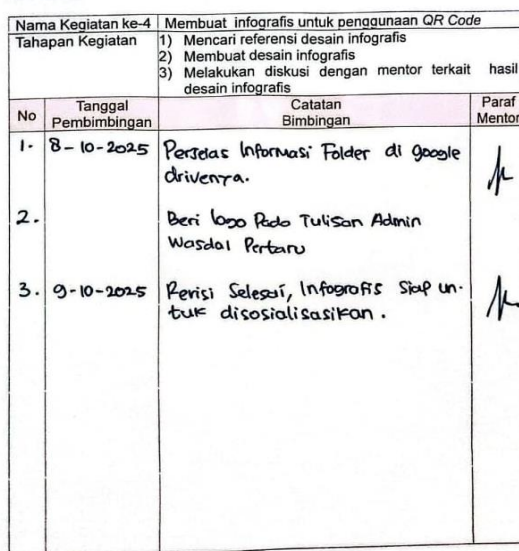 Nama Kegiatan ke-4 Membuat infografis untuk penggunaan QR Code
Tahapan Kegiatan 1) Mencari referensi desain infografis
2) Membuat desain infografis
3) Melakukan diskusi dengan mentor terkait hasil
desain infografis
No Tanggal Pembimbingan Catatan Bimbingan Paraf Mentor
1. 8-10-2025 Perjelas Informasi Folder di google
drivenya.
2. Beri logo Pada Tulisan Admin
Wasdal Pertaru
3. 9-10-2025 Revisi Selesai, Infografis Siap un-
tuk disosialisasikan.